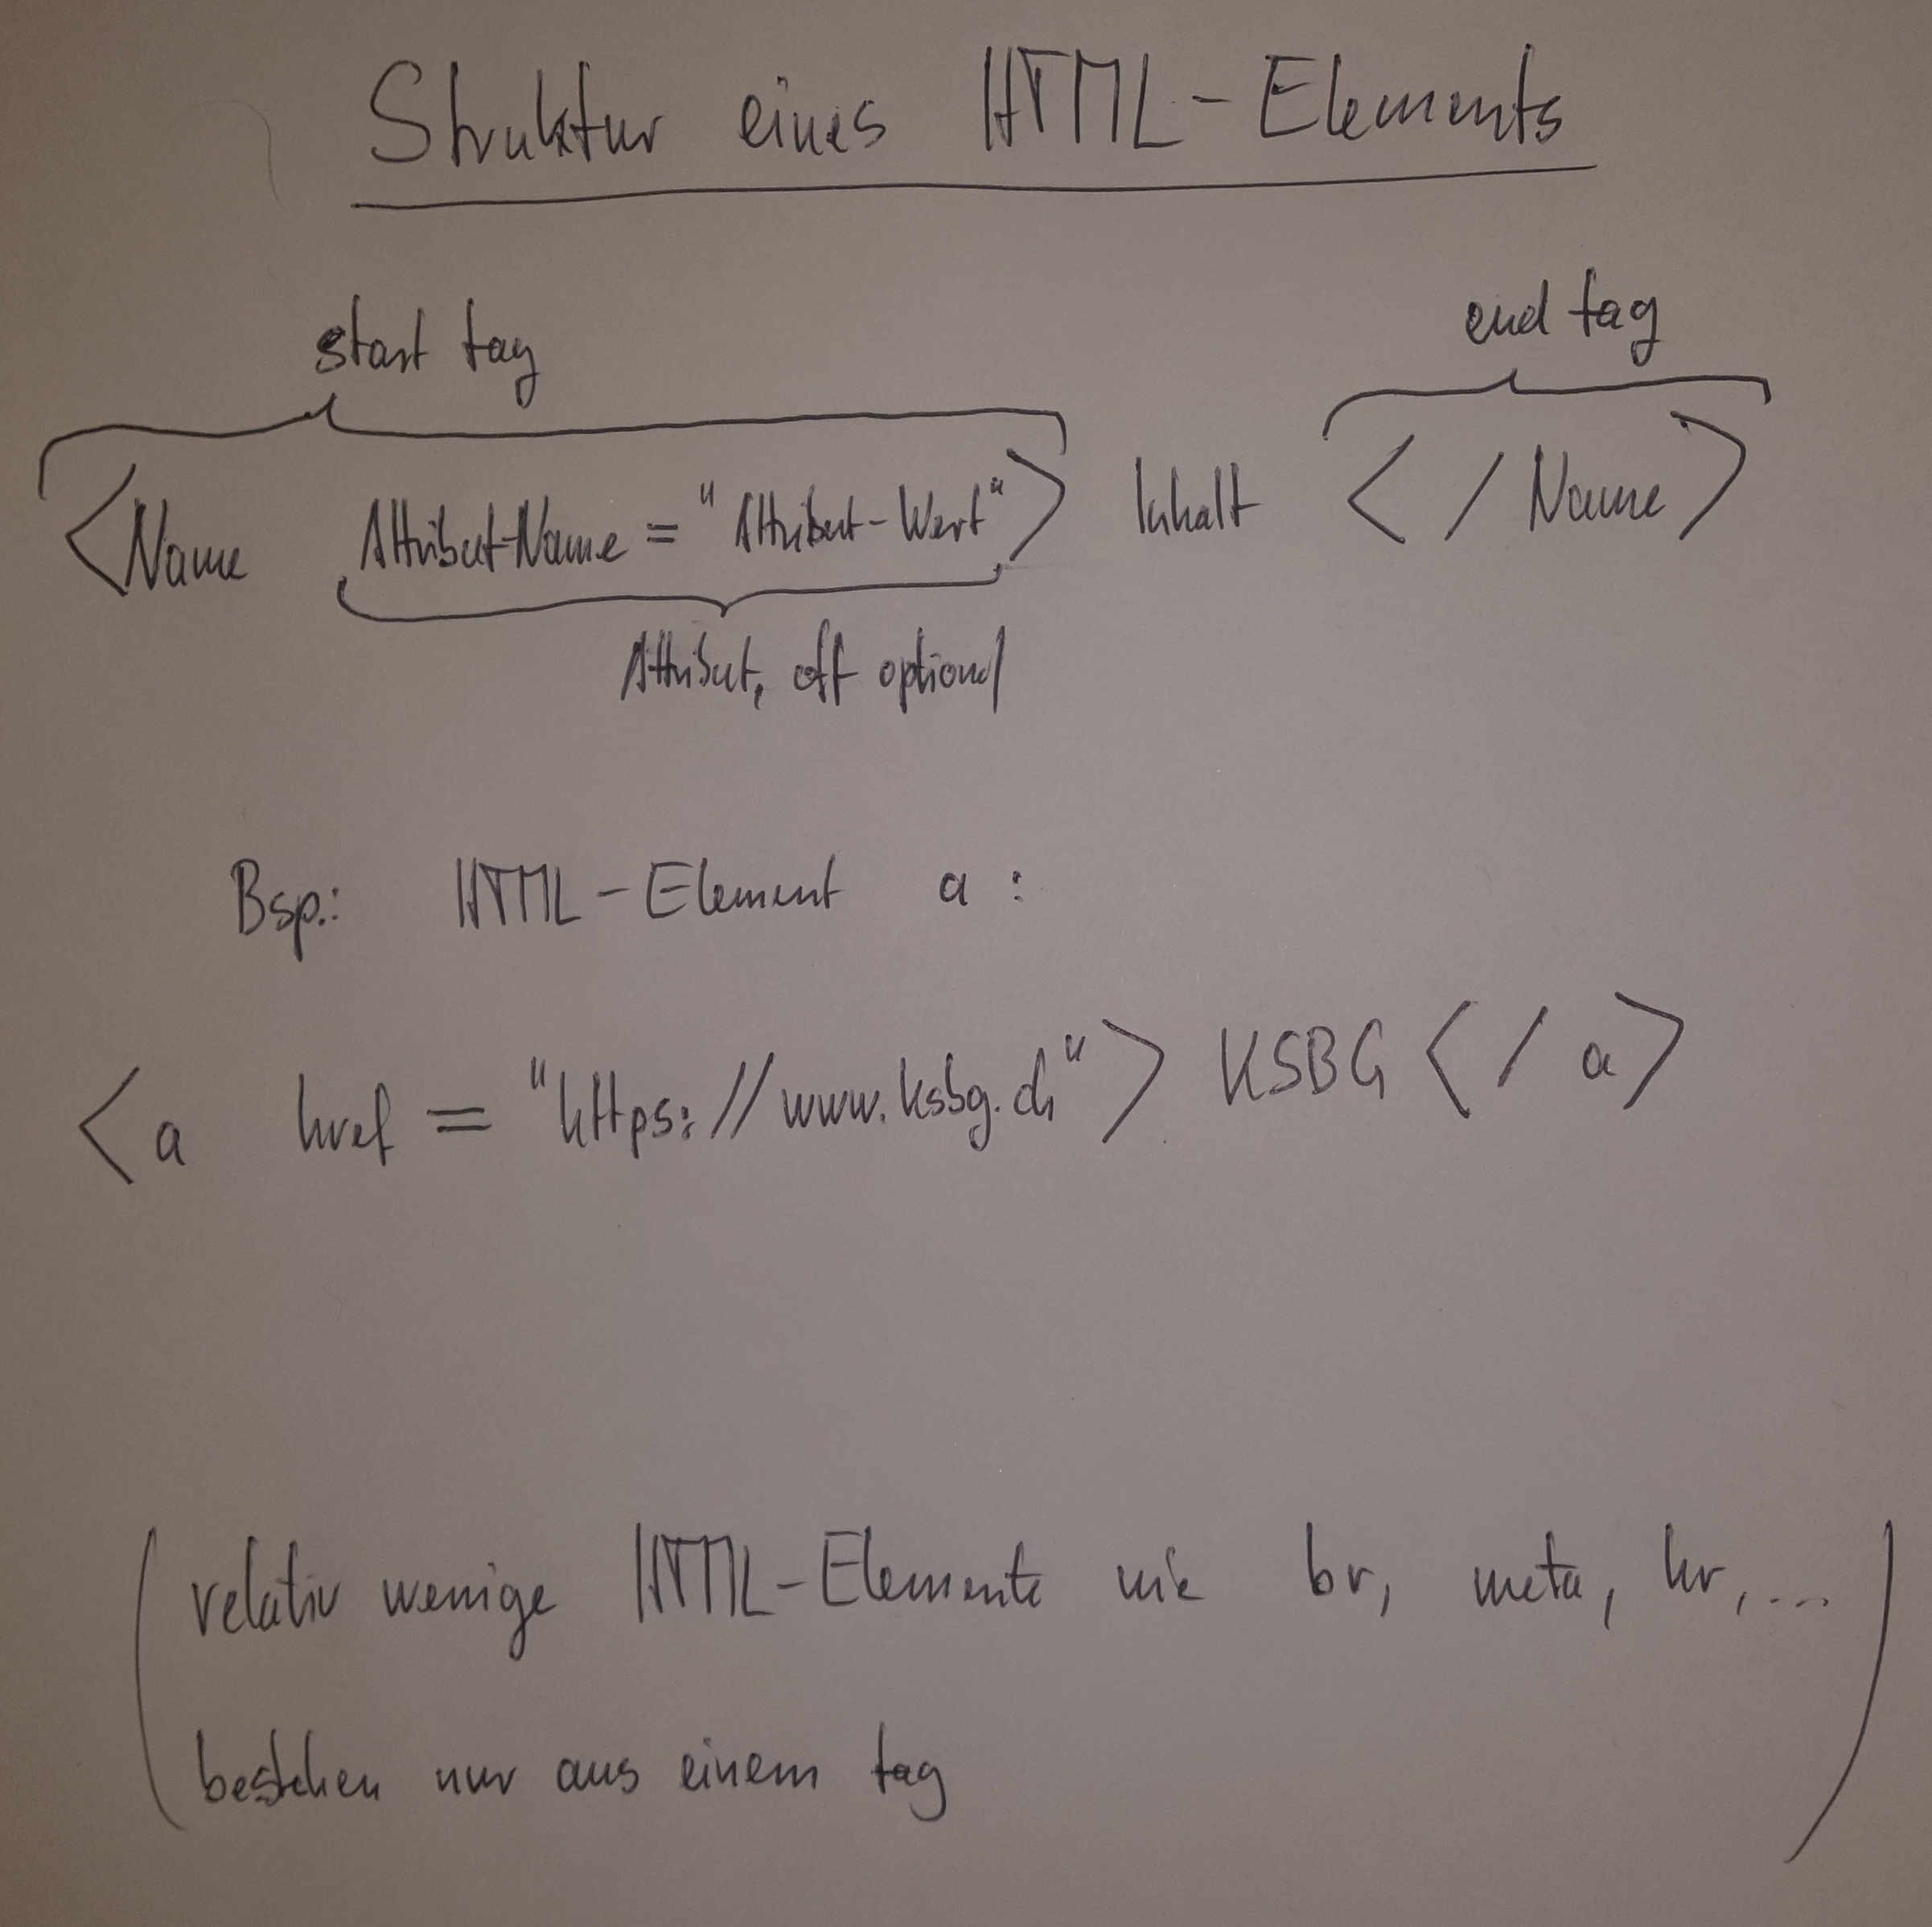 Struktur eines HTML-Elements
start tag end tag
<Name Attribut-Name = "Attribut-Wert"> Inhalt </Name>
Attribut, oft optional
Bsp.: HTML-Element a :
<a href = "https://www.ksbg.ch"> KSBG </a>
(relativ wenige HTML-Elemente wie br, meta, hr, ...
bestehen nur aus einem tag)